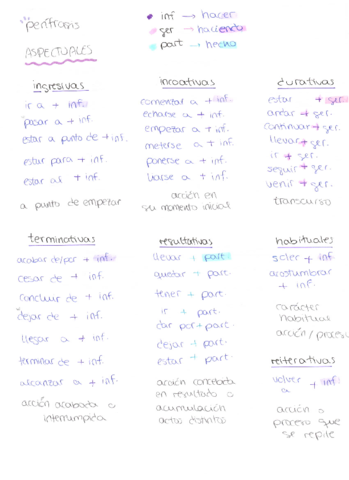 perífrasis
ASPECTUALES
inf → hacer
ger → haciendo
part → hecho
ingresivas
ir a + inf.
pasar a + inf.
estar a punto de + inf.
estar para + inf.
estar al + inf.
a punto de empezar
incoativas
comenzar a + inf.
echarse a + inf.
empezar a + inf.
meterse a + inf.
ponerse a + inf.
liarse a + inf.
acción en
su momento inicial
durativas
estar + ger.
andar + ger.
continuar + ger.
llevar + ger.
ir + ger.
seguir + ger.
venir + ger.
transcurso
terminativas
acabar de/por + inf.
cesar de + inf.
concluir de + inf.
dejar de + inf.
llegar a + inf.
terminar de + inf.
alcanzar a + inf.
acción acabada o
interrumpida
resultativas
llevar + part.
quedar + part.
tener + part.
ir + part.
dar por + part.
dejar + part.
estar + part.
acción concretada
en resultado o
acumulación
actos distintos
habituales
soler + inf.
acostumbrar
+ inf.
carácter
habitual
acción / proceso
reiterativas
volver + inf.
a
acción o
proceso que
se repite